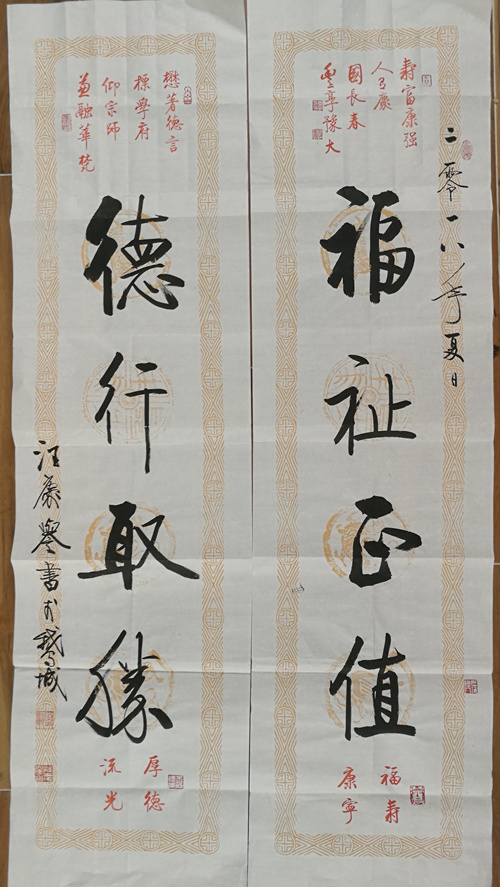 二零一八年夏日
壽富康强
人康
國長春
豐亨豫大
福祉正值
福壽
康寧
懋著德言
標學府
仰宗師
兼融華梵
德行取勝
厚德
流光
汪書於鵝城